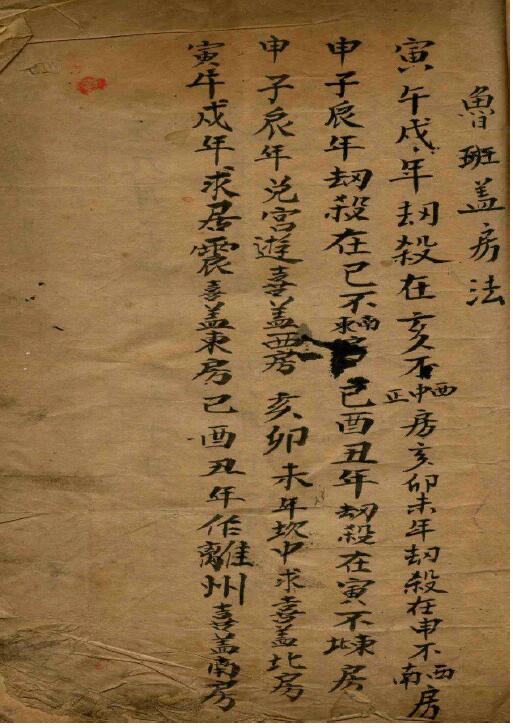 魯班盖房法
寅午戍年刼殺在亥不西北正中房亥卯未年刼殺在申不西南房
申子辰年刼殺在巳不東南房巳酉丑年刼殺在寅不東北房
申子辰年兑宫遊喜盖西房亥卯未年坎中求喜盖北房
寅午戍年求居震喜盖東房巳酉丑年作離州喜盖南房